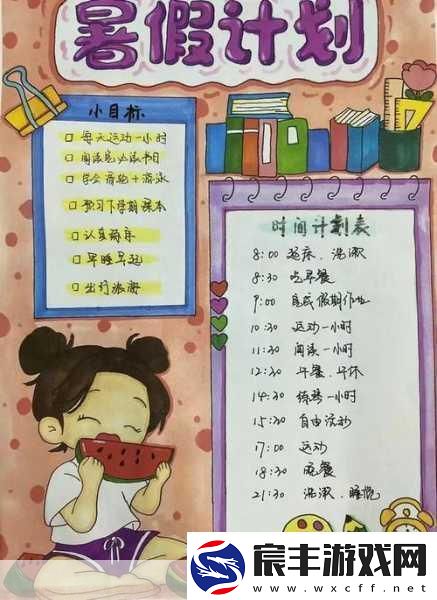 暑假计划
小目标
每天运动一小时
阅读完必读书目
学会滑轮+游泳
预习下学期课本
认真练字
早睡早起
出行旅游
时间计划表
8:00 起床、洗漱
8:30 吃早餐
9:00 完成假期作业
10:30 运动一小时
11:30 阅读一小时
12:30 午餐、午休
14:30 练琴一小时
15:30 自由活动
17:00 运动
18:30 晚餐
21:30 洗漱、睡觉
宸丰游戏网
www.wxcff.net